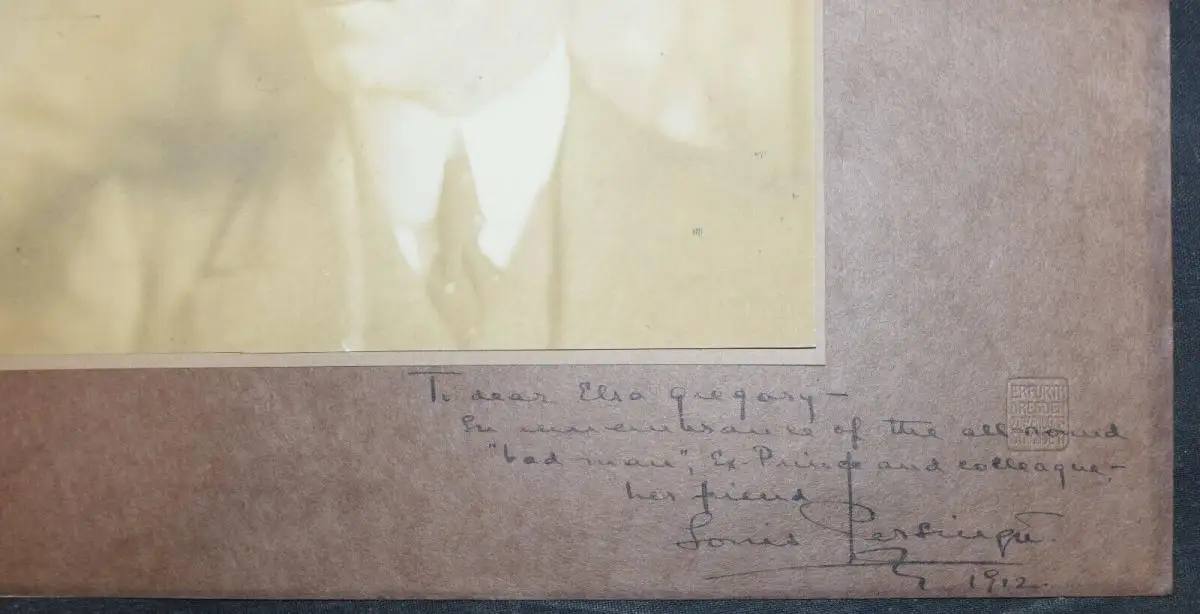 To dear Elsa Gregory —
In remembrance of the all-round
"bad man", Ex-Prince and colleague,—
her friend
Louis Persinger.
1912.
ERFURTH
DRESDEN